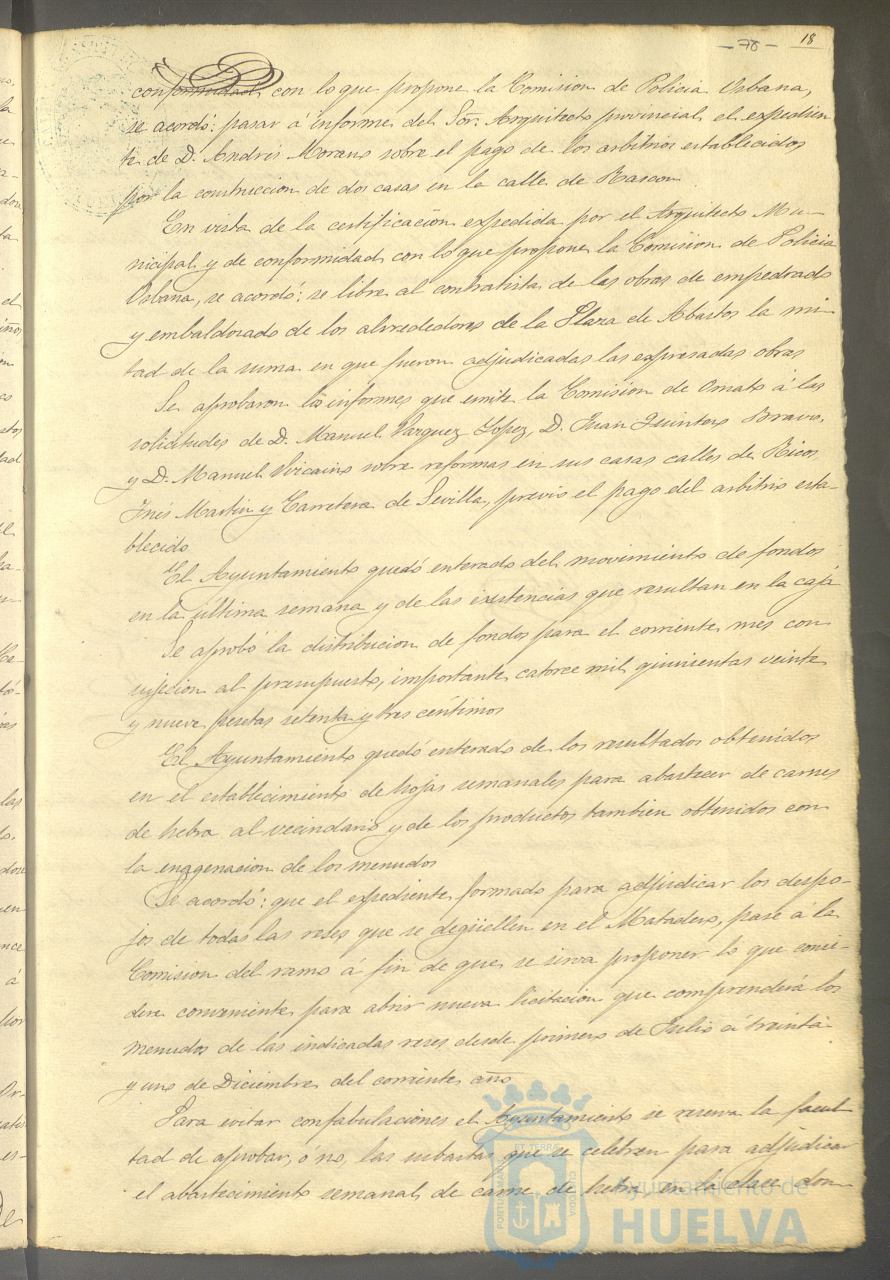 - 78 - 18
conformidad con lo que propone la Comision de Policia Urbana,
se acordó: pasar á informe del Sor. Arquitecto provincial el expedien
te de D. Andrés Morano sobre el pago de los arbitrios establecidos
por la construccion de dos casas en la calle de Rascon.
En vista de la certificación expedida por el Arquitecto Mu-
nicipal y de conformidad con lo que propone la Comision de Policia
Urbana, se acordó; se libre al contratista de las obras de empedrado
y embaldosado de los alrrededores de la Plaza de Abastos la mi-
tad de la suma en que fueron adjudicadas las expresadas obras
Se aprobaron los informes que emite la Comision de Ornato á las
solicitudes de D. Manuel Vazquez López, D. Juan Quintero Bravo,
y D. Manuel Vizcaino sobre reformas en sus casas calles de Ricos,
Inés Martin y Carretera de Sevilla, previo el pago del arbitrio esta-
blecido
El Ayuntamiento quedó enterado del movimiento de fondos
en la última semana y de las existencias que resultan en la caja
Se aprobó la distribucion de fondos para el corriente mes con
sujecion al presupuesto, importante catorce mil quinientas veinte
y nueve pesetas setenta y tres céntimos
El Ayuntamiento quedó enterado de los resultados obtenidos
en el establecimiento de hojas semanales para abastecer de carnes
de hebra al vecindario y de los productos tambien obtenidos con
la enagenacion de los menudos
Se acordó: que el expediente formado para adjudicar los despo-
jos de todas las reses que se degüellen en el Matadero, pase á la
Comision del ramo á fin de que se sirva proponer lo que consi-
dere conveniente para abrir nueva licitacion que comprenderá los
menudos de las indicadas reses desde primero de Julio á treinta
y uno de Diciembre del corriente año
Para evitar confabulaciones el Ayuntamiento se reserva la facul
tad de aprobar, ó no, las subastas que se celebren para adjudicar
el abastecimiento semanal de carne de hebra, en la clase don
Ayuntamiento de
HUELVA